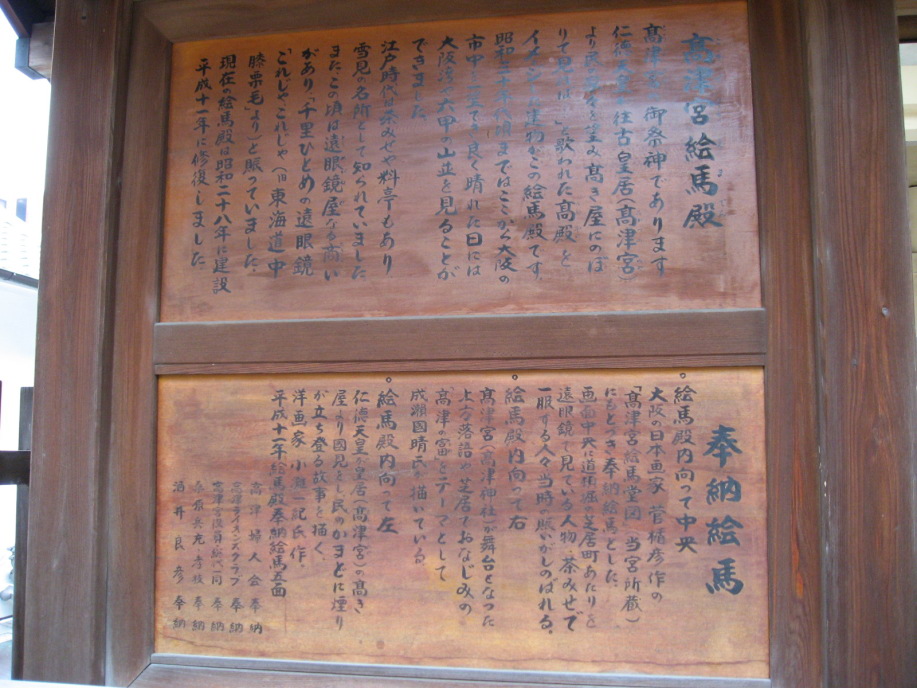 高津宮絵馬殿
高津宮の御祭神であります
仁徳天皇が往古皇居(高津宮)
より民のかまどを望み「高き屋にのぼ
りて見れば…」と歌われた高殿を
イメージした建物がこの絵馬殿です
昭和二十年代頃まではここから大阪の
市中が一望でき良く晴れた日には
大阪湾や六甲の山並を見ることが
できました
江戸時代は茶みせや料亭もあり
雪見の名所として知られていました
またこの頃は遠眼鏡屋なる商い
があり「千里ひとめの遠眼鏡
「これじゃこれじゃ(旧東海道中
膝栗毛)より」と賑っていました
現在の絵馬殿は昭和二十八年に建設
平成十一年に修復しました
奉納絵馬
。絵馬殿内向って中央
大阪の日本画家 菅楯彦作の
「高津宮絵馬堂図」(当宮所蔵)
にもとづき奉納絵馬とした
画面中央に道頓堀の芝居町あたりを
遠眼鏡で見ている人物・茶みせで
一服する人々当時の賑いがしのばれる
。絵馬殿内向って右
高津宮(高津神社)が舞台となった
上方落語や芝居でおなじみの
高津の富をテーマとして
成瀬國晴氏が描いている
。絵馬殿内向って左
仁徳天皇が皇居(高津宮)の高き
屋より国見をし民のかまどに煙り
が立ち登る故事を描く
洋画家 小進一記氏作
平成十一年絵馬殿奉納絵馬五面
高津婦人会 奉納
高津ライオンズクラブ 奉納
高津宮総代一同 奉納
奉納
酒井良彦 奉納